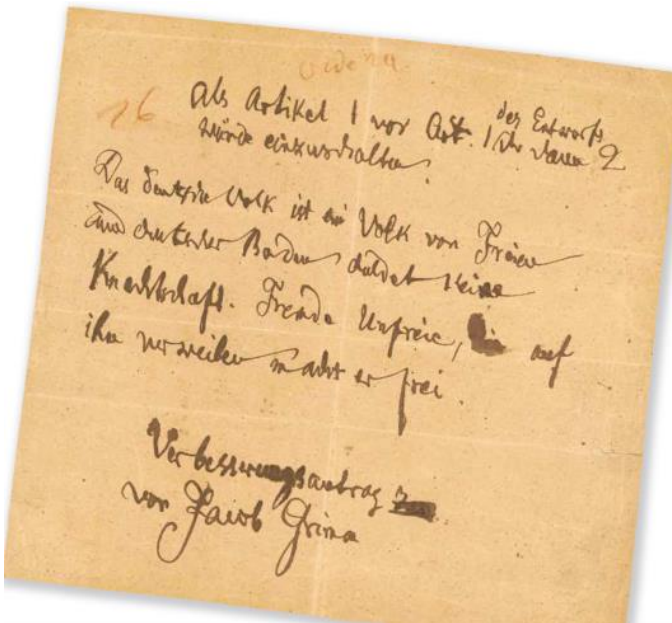 16 Als Artikel 1 vor Art. 1 des Entwurfs
würde einzuschalten:
Das deutsche Volk ist ein Volk von Freien
und deutscher Boden duldet keine
Knechtschaft. Fremde Unfreie, die auf
ihm verweilen macht er frei.
Verbesserungsantrag
von Jacob Grimm